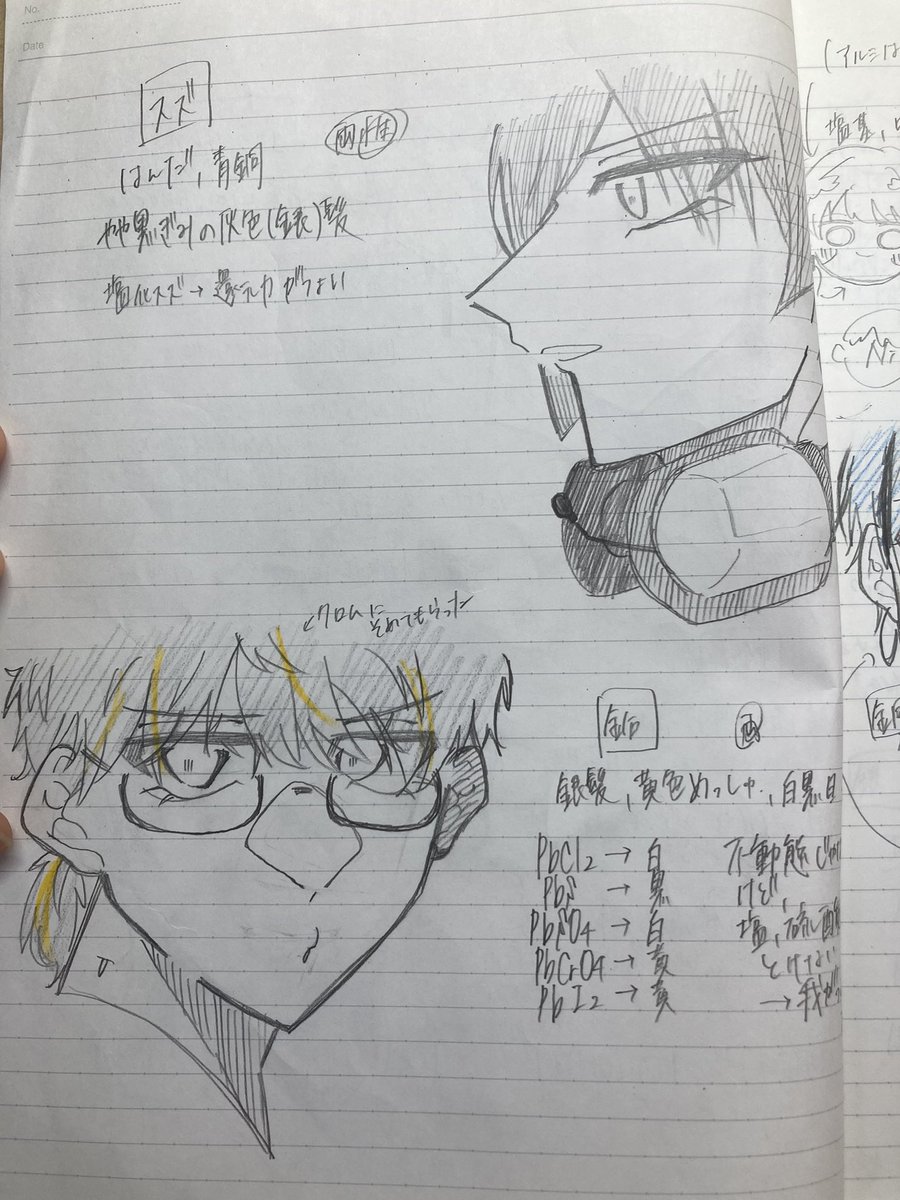 No.
Date
スズ
両性
はんだ,青銅
やや黒ぎみの灰色(銀)髪
塩化スズ→還元力がつよい
クロムにそめてもらった
鉛
両
銀髪,黄色めっしゅ,白黒目
PbCl2→白
PbS→黒
PbSO4→白
PbCrO4→黄
PbI2→黄
不動態じゃ
けど,
塩,硫酸
とけない
→我が
(アルミは
塩基,
Ni